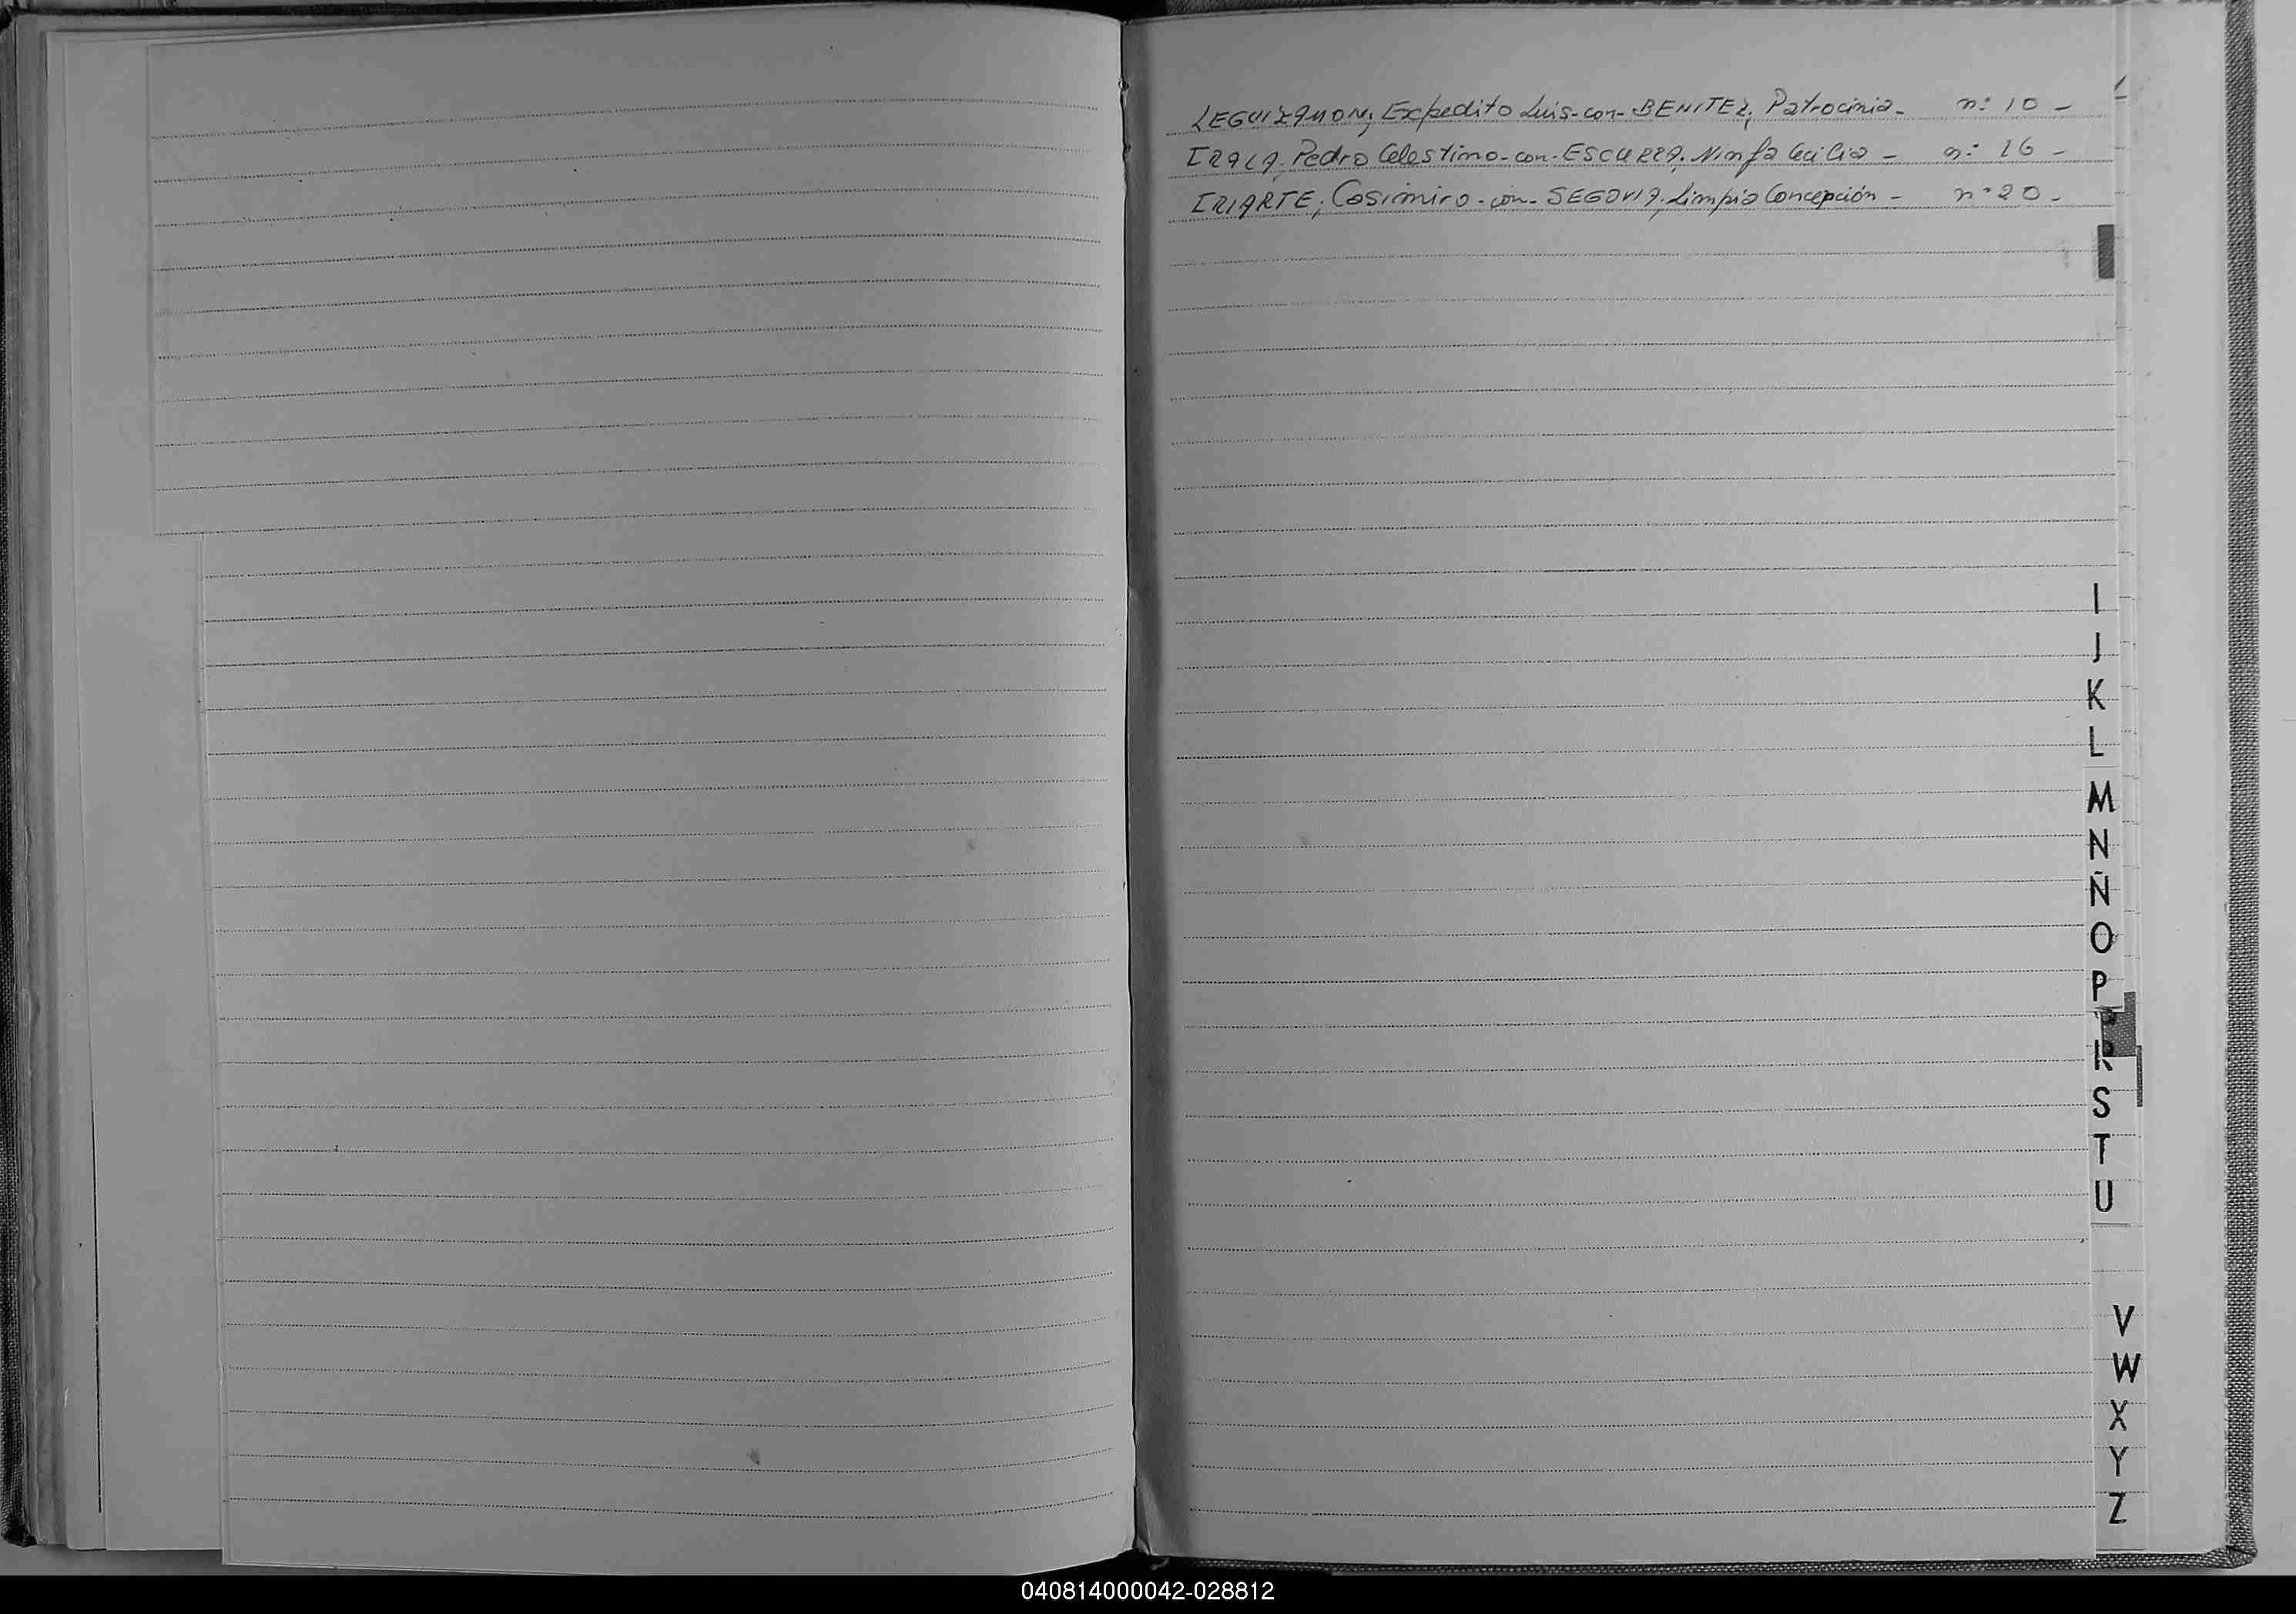 LEGUIZAMON, Expedito Luis-con-BENITEZ, Patrocinia- n: 10 -
IRALA, Pedro Celestino-con-ESCURRA, Ninfa Cecilia - n: 16 -
IRIARTE, Casimiro-con-SEGOVIA, Limpia Concepción - n: 20 -
I
J
K
L
M
N
Ñ
O
P
R
S
T
U
V
W
X
Y
Z
040814000042-028812